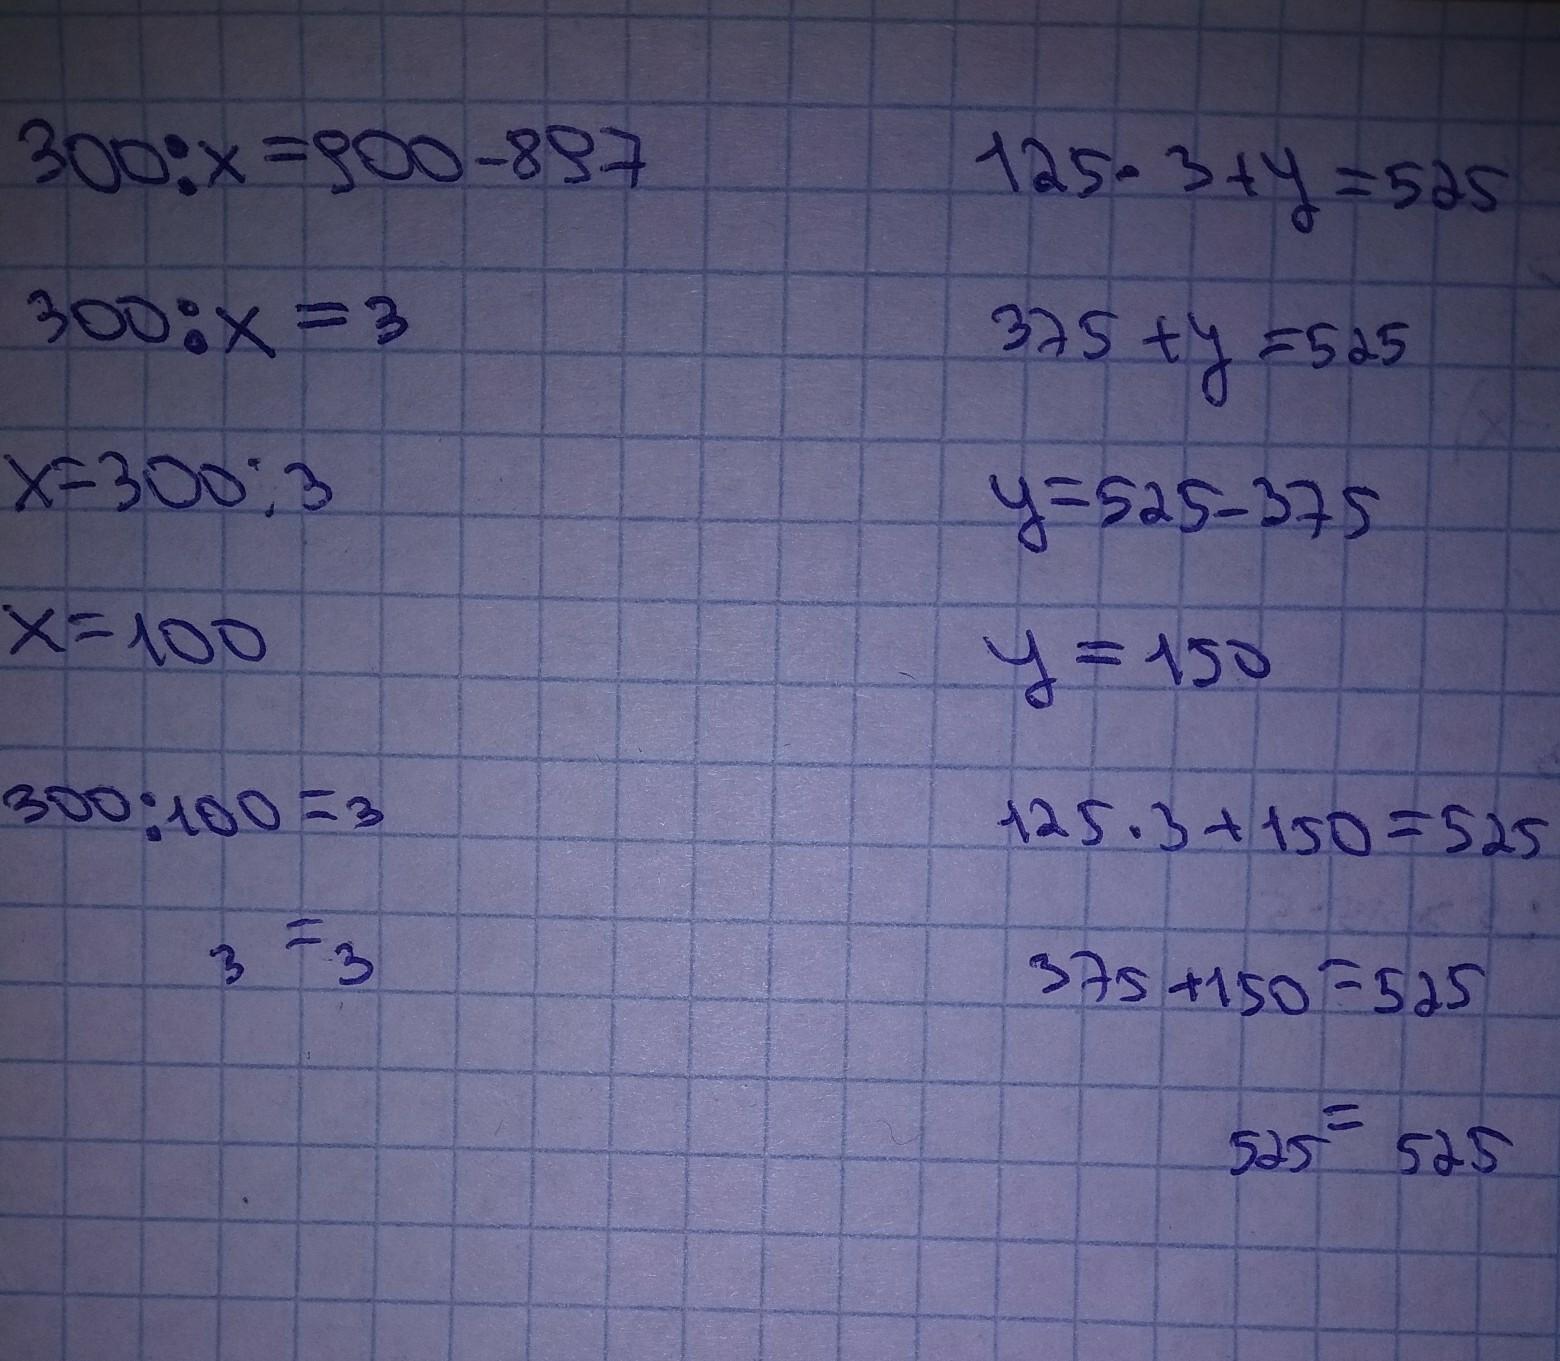 300:x=900-897
300:x=3
x=300:3
x=100
300:100=3
3=3
125·3+y=525
375+y=525
y=525-375
y=150
125·3+150=525
375+150=525
525=525